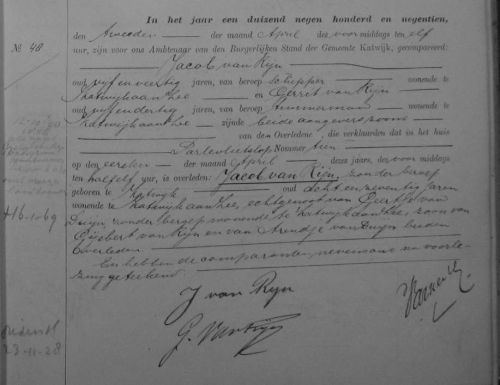 In het jaar een duizend negen honderd en negentien,
den tweeden der maand April des voor middags ten elf
№ 40
ure, zijn voor ons Ambtenaar van den Burgerlijken Stand der Gemeente Katwijk, gecompareerd:
Jacob van Rijn
oud vijf en veertig jaren, van beroep schipper wonende te
Katwijk aan Zee en Gerret van Rijn
oud vijf en dertig jaren, van beroep timmerman wonende te
Katwijk aan Zee zijnde beide aangevers zoons
van den Overledene, die verklaarden dat in het huis
Nommer tien
op den eersten der maand April dezes jaars, des voor middags
ten half elf ure, is overleden: Jacob van Rijn, zonder beroep
geboren te Katwijk oud acht en zeventig jaren
wonende te Katwijk aan Zee, echtgenoot van Geertje van
Duijn, zonder beroep wonende te Katwijk aan Zee, zoon van
Gijsbert van Rijn en van Arendje van Duijn beiden
overleden.
En hebben de comparanten nevens ons na voorle-
zing geteekend.
J van Rijn
G. van Rijn